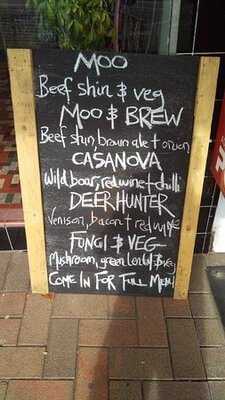 MOO
Beef shin & veg
MOO & BREW
Beef shin, brown ale + onion
CASANOVA
Wild boar, red wine + chilli
DEERHUNTER
Venison, bacon + red wine
FUNGI & VEG
Mushroom, green lentil & veg
COME IN FOR FULL MENU